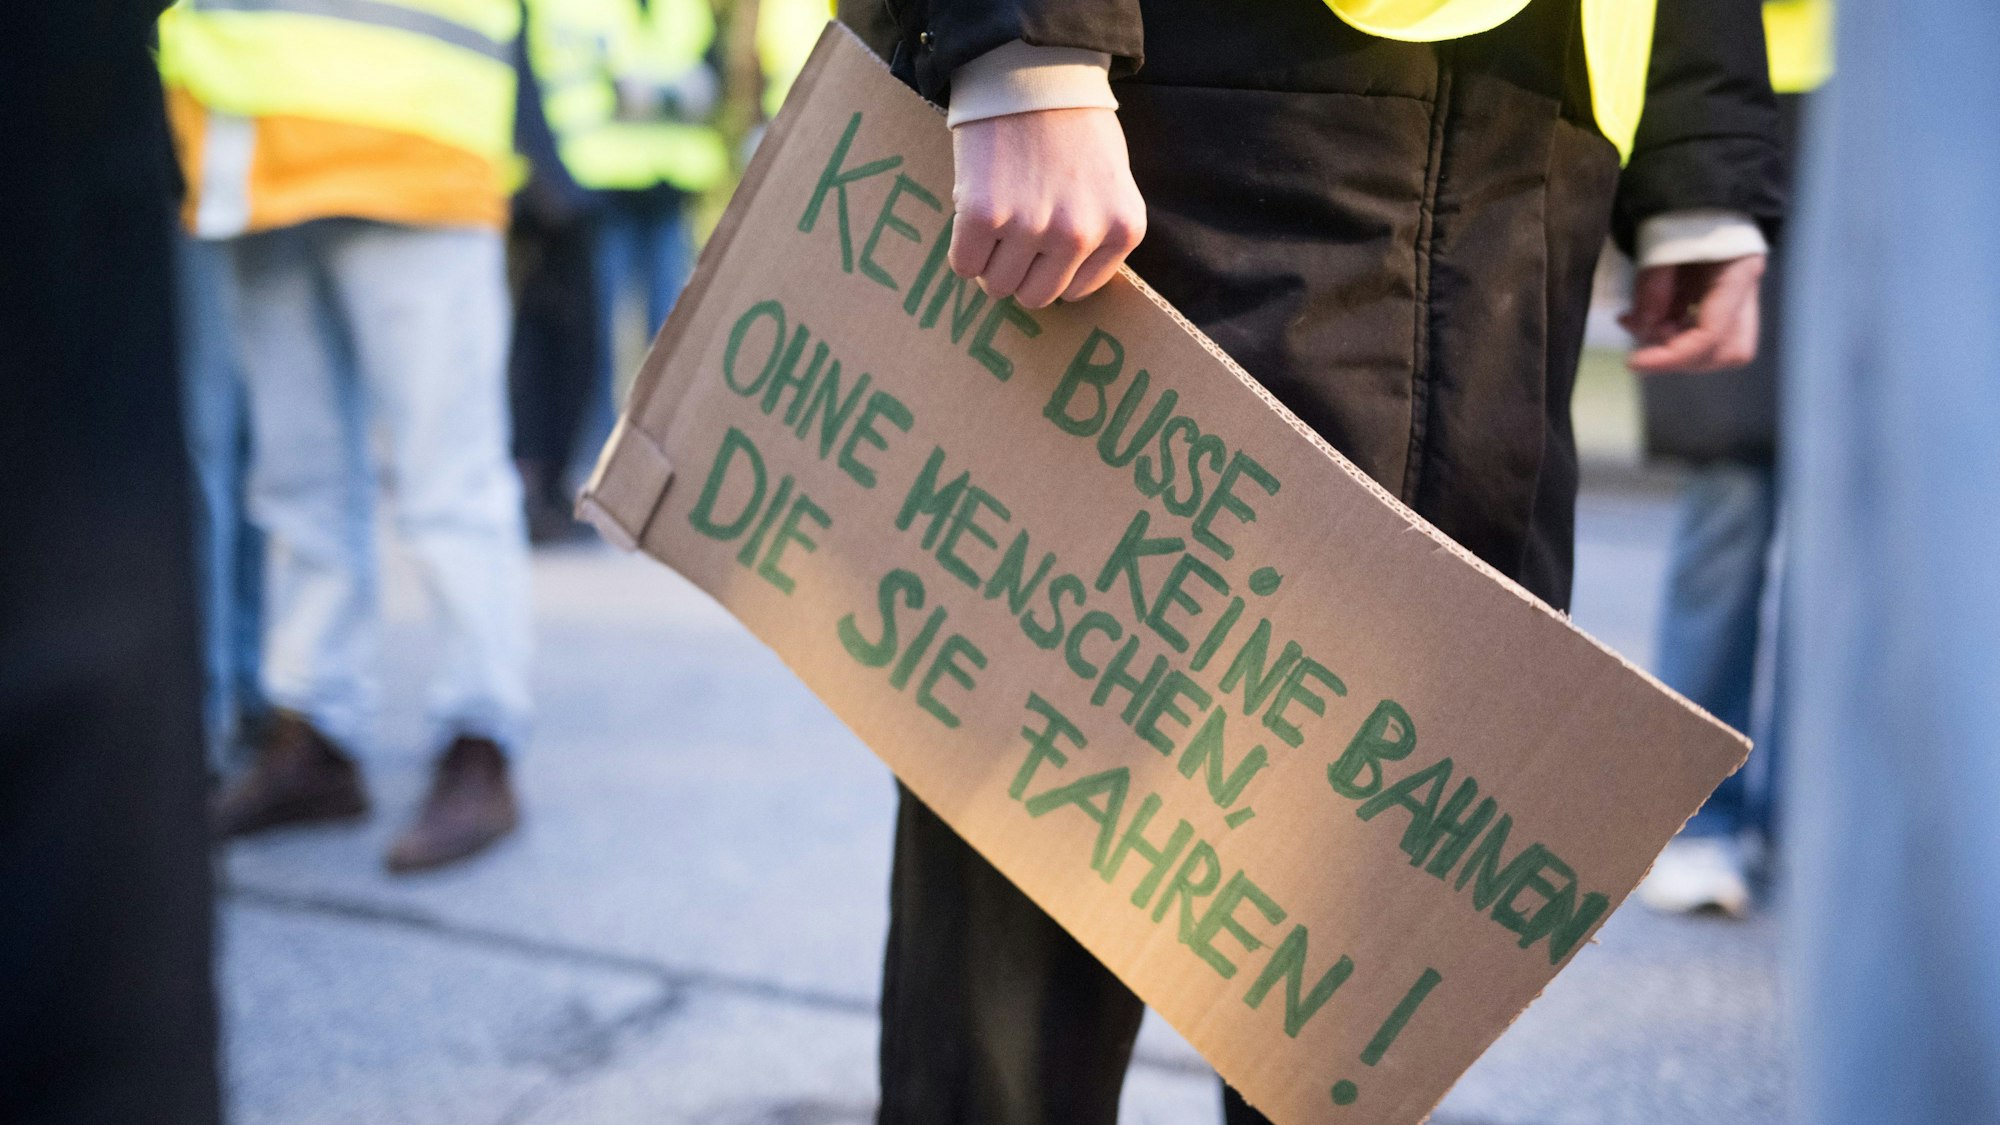 KEINE BUSSE
KEINE BAHNEN
OHNE MENSCHEN,
DIE SIE FAHREN!